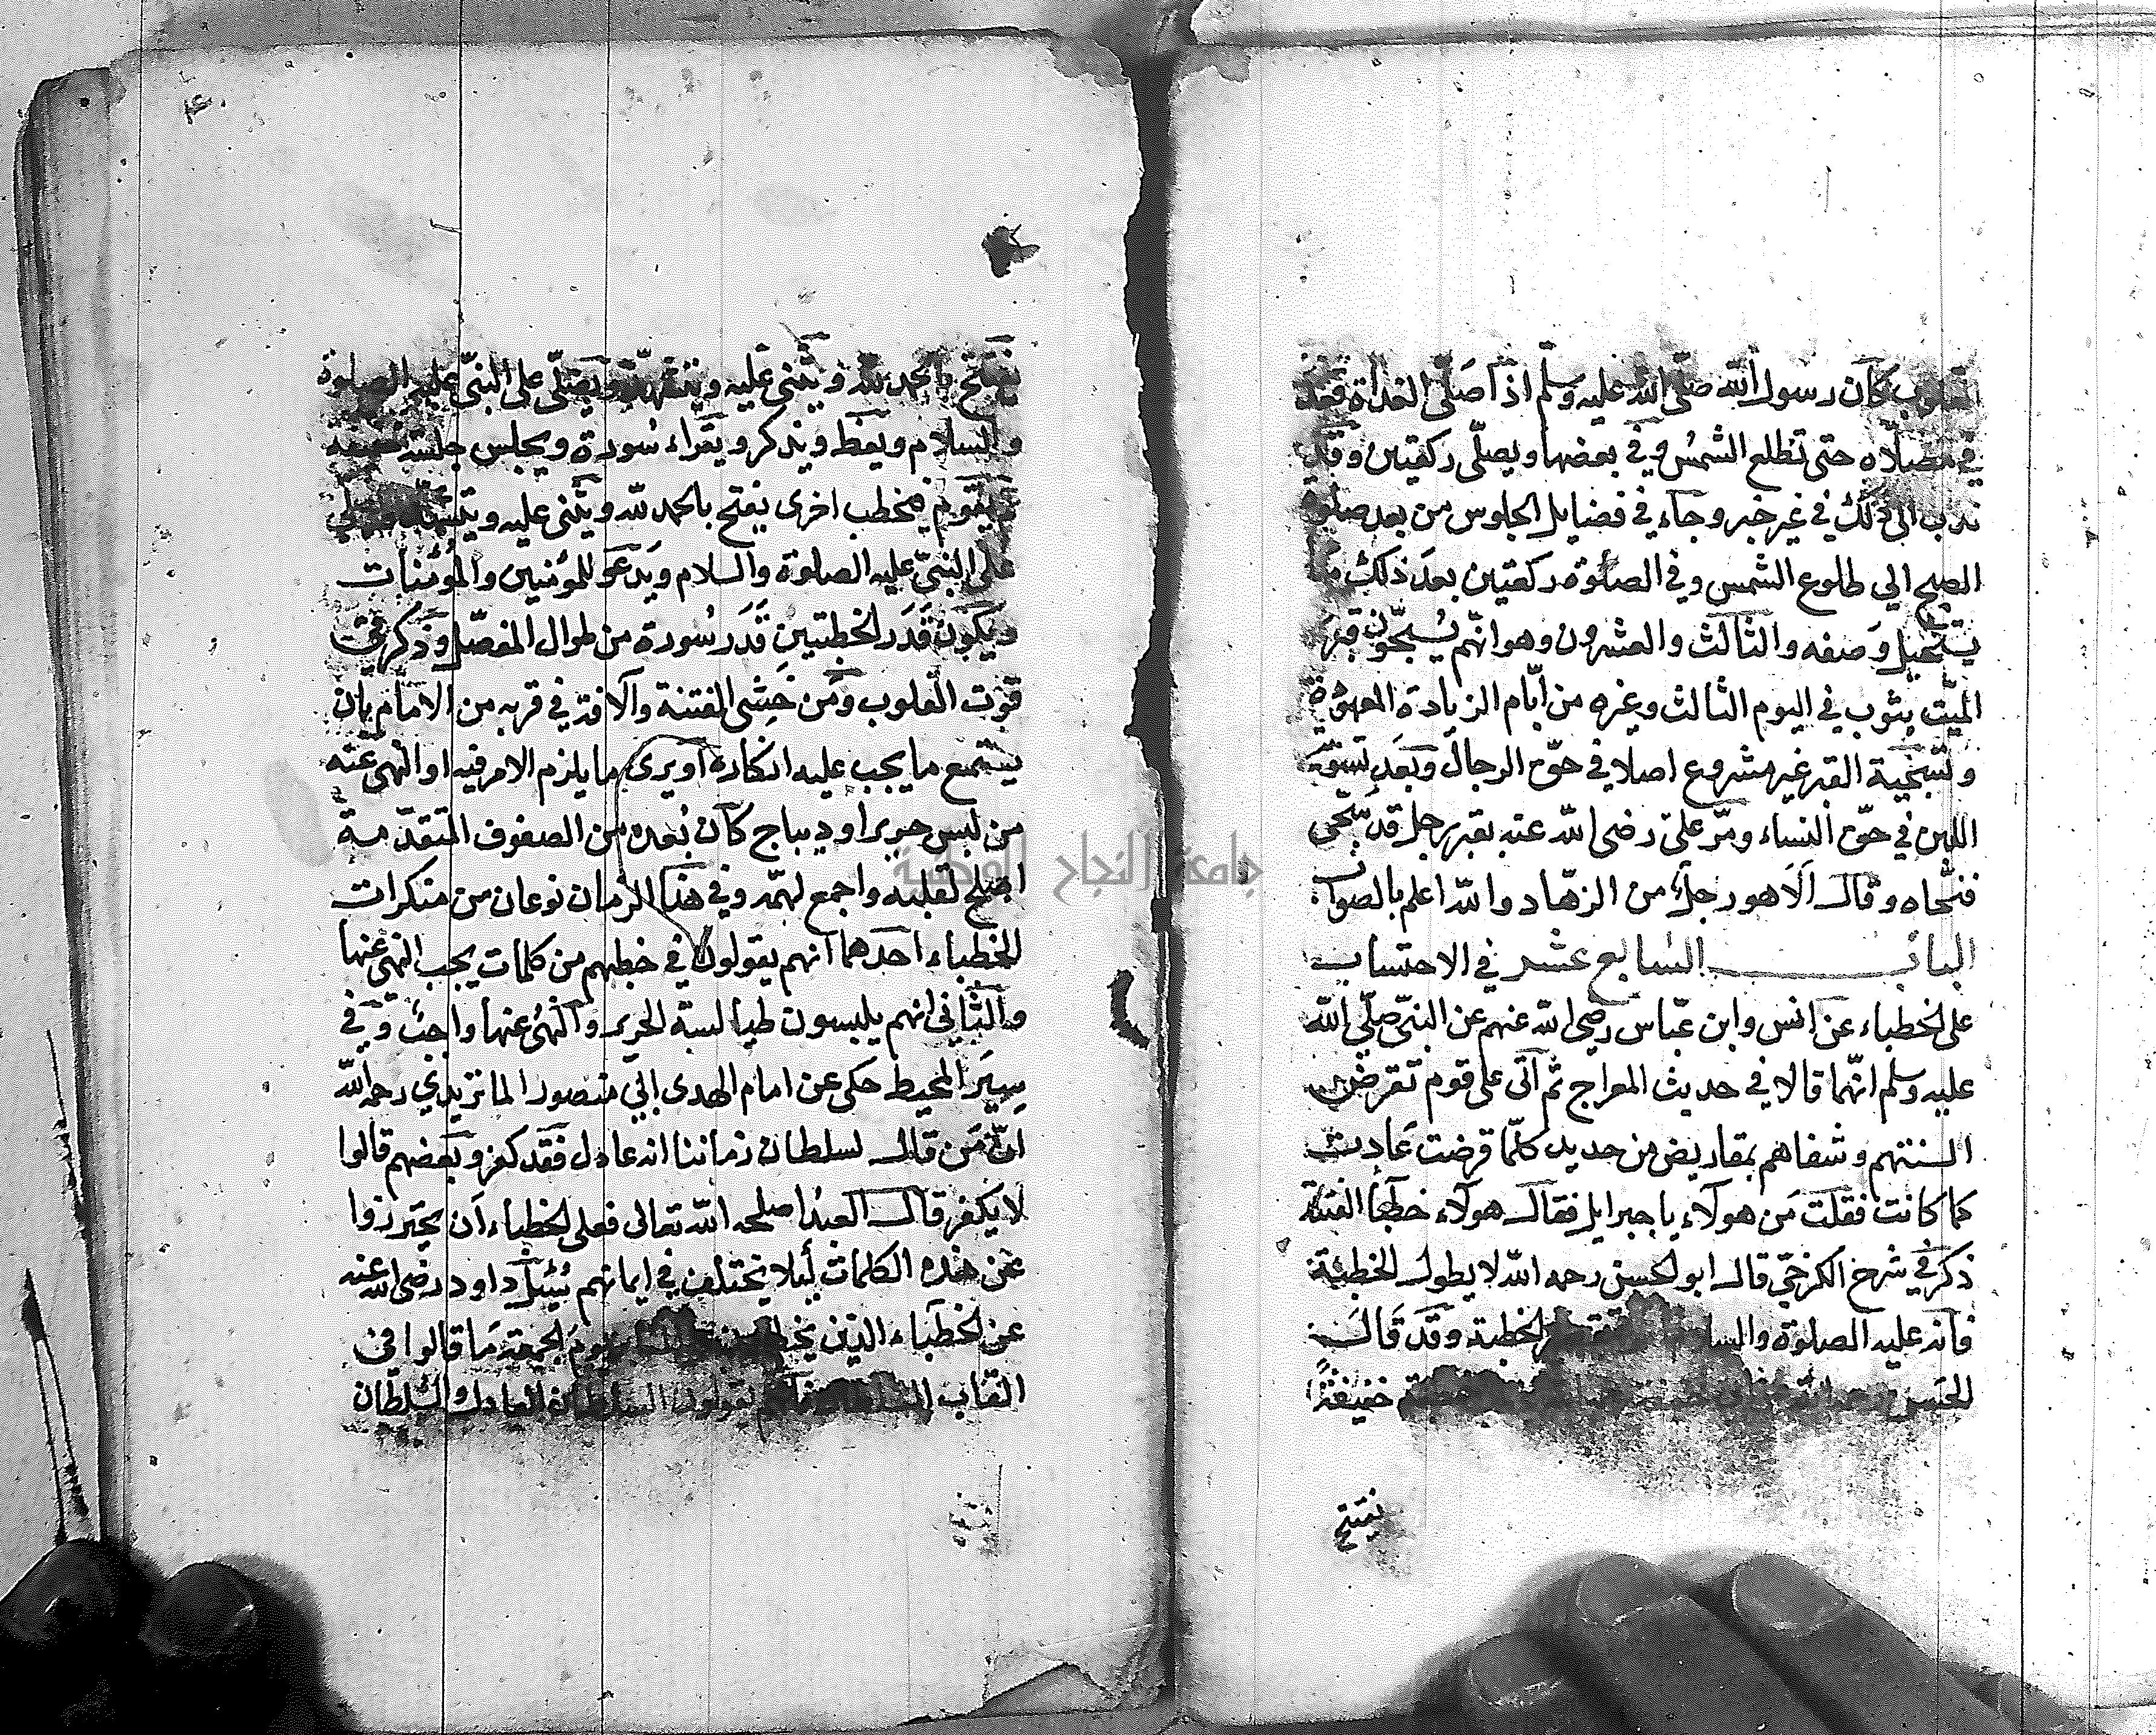 القلوب كان رسول الله صلى الله عليه وسلم اذا صلى الغداة قعد
في مصلاه حتى تطلع الشمس وفي بعضها ويصلى ركعتين وقد
ندب الى ذلك في غير خبر وجاء في فضايل الجلوس من بعد صلوة
الصبح الي طلوع الشمس وفي الصلوة ركعتين بعد ذلك ما
يستحيل وصفه والثالث والعشرون وهو انهم يسجّون قبر
الميّت بثوب في اليوم الثالث وغيره من ايّام الزيادة المعهودة
وتسجية القبر غير مشروع اصلا في حقّ الرجال وبعد تسوية
اللبن في حقّ النساء ومرّ علىّ رضى الله عنه بقبر رجل قد سجّى
فنحّاه وقال الا هو رجل من الزهّاد والله اعلم بالصواب
الباب السابع عشر في الاحتساب
على الخطباء عن انس وابن عبّاس رضى الله عنهم عن النبىّ صلّى الله
عليه وسلم انهّما قالا في حديث المعراج ثم اتى على قوم تقرض
السنتهم وشفاهم بمقاريض من حديد كلّما قرضت عادت
كما كانت فقلت من هولاء يا جبرايل فقال هولاء خطباء الفتنة
ذكر في شرح الكرخيّ قال ابو الحسن رحمه الله لا يطول الخطبة
فانه عليه الصلوة والسلام الخطبة وقد قال
الحسن خفيفةً
يفتتح
يفتتح بالحمد لله ويثنى عليه ويتشهد ويصلّى على النبىّ عليه الصلوة
والسلام ويعظ ويذكر ويقراء سورة ويجلس جلسة خفيفة
ثم يقوم فيخطب اخرى يفتح بالحمد لله ويثنى عليه ويتشهد ويصلى
على النبىّ عليه الصلوة والسلام ويدعو للمؤمنين والمؤمنات
ويكون قدر الخطبتين قدر سورة من طوال المفصّل وذكر في
قوت القلوب ومن خشى الفتنة والافة في قربه من الامام بان
يستمع ما يجب عليه انكاره او يرى ما يلزم الامر فيه او النهى عنه
من لبس حرير او ديباج كان بُعده من الصفوف المتقدّمة
اصلح لقلبه واجمع لهمّه وفي هذا الزمان نوعان من منكرات
الخطباء احدهما انهم يقولون في خطبهم من كلمات يجب النهى عنها
والثاني انهم يلبسون طيالسة الحرير والنهى عنها واجب وفي
سير المحيط حكى عن امام الهدى ابي منصور الماتريدي رحمه الله
انّ من قال لسلطان زماننا انه عادل فقد كفر وبعضهم قالوا
لا يكفر قال العبد اصلحه الله تعالى فعلى الخطباء ان يحترزوا
عن هذه الكلمات ليلا يختلف في ايمانهم سُئل داود رضى الله عنه
عن الخطباء الذين يخطبون يوم الجمعة ما قالوا في
القاب يقولون السلطان العادل والسلطان